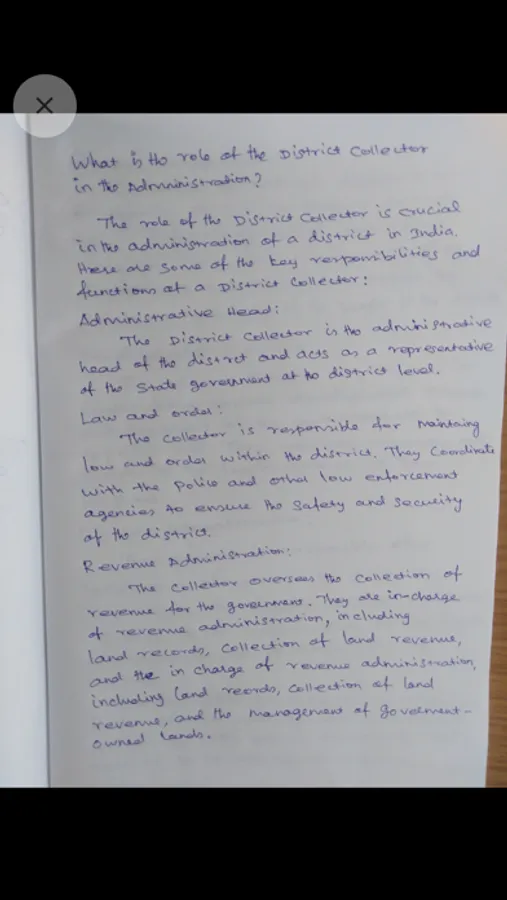 What is the role of the District Collector
in the Administration?
The role of the District Collector is crucial
in the administration of a district in India.
These are some of the key responsibilities and
functions of a District Collector:
Administrative Head:
The District Collector is the administrative
head of the district and acts as a representative
of the State government at the district level.
Law and order:
The Collector is responsible for maintaing
low and order within the district. They Coordinate
with the Police and other low enforcement
agencies to ensure the Safety and Security
of the district.
Revenue Administration:
The Collector oversees the Collection of
revenue for the government. They are in-charge
of revenue administration, including
land records, Collection of land revenue,
and the in charge of revenue administration,
including land records, Collection of land
revenue, and the management of government-
owned lands.